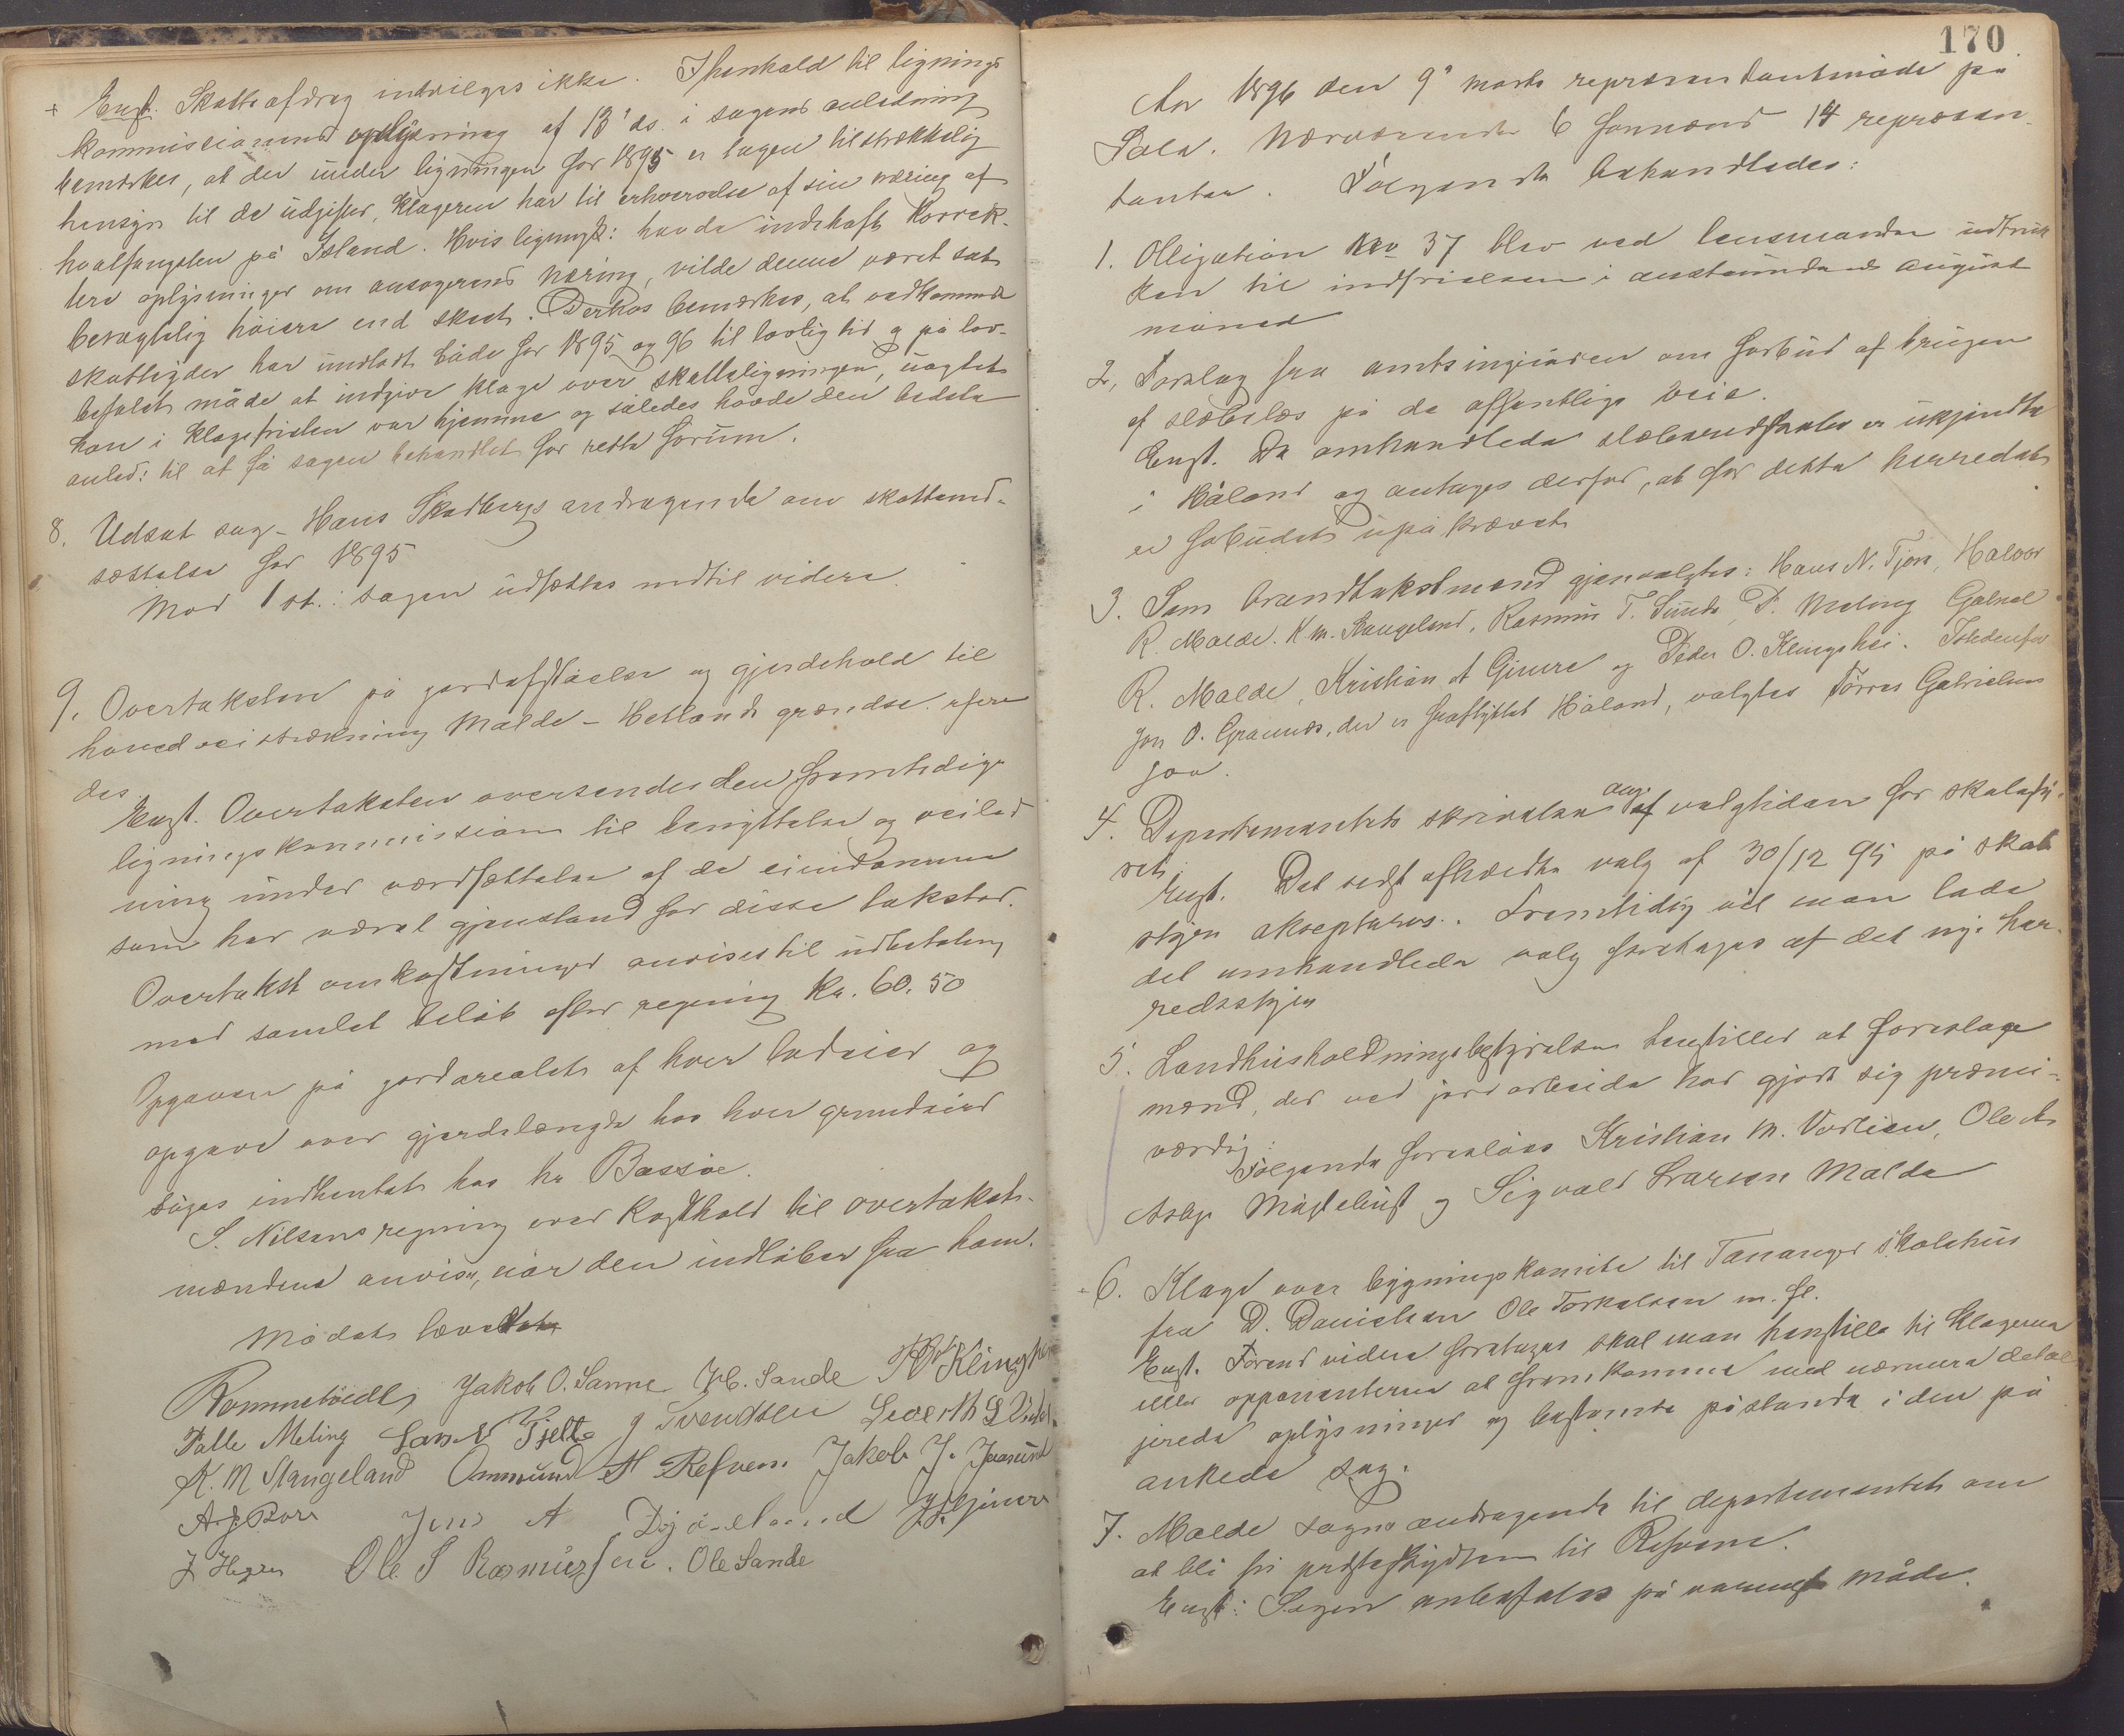 + Enst. Skatteafdrag indvilges ikke. I henhold til lignings
kommissionens oplysning af 13' ds. i sagens anledning
bemærkes, at der under ligningen for 1895 er tagen tilstrækkelig
hensyn til de udgifter, klageren har til erhvervelse af sin næring af
hvalfangsten på Island. Hvis lignings: havde indehaft korrek-
tere oplysninger om ansøgerens næring, vilde denne været sat
betragtelig høiere end skeet. Derhos bemærkes, at vedkommende
skatteyder har undladt både for 1895 og 96 til lovlig tid og på lov-
befalet måde at indgive klage over skatteligningen, uagtet
han i klagefristen var hjemme og således havde den bedste
anled: til at få sagen behandlet for rette forum.
8. Udsat sag - Hans Skadbergs andragende om skattened-
sættelse for 1895
Mod 1 st.: sagen udsættes indtil videre.
9. Overtaksten på jordafståelse og gjerdehold til
hovedveistrækning Malde - Hetlands grændse refere
des
Enst. Overtaksten oversendes den fremtidige
ligningskommission til benyttelse og veiled
ning under værdsættelse af de eiendomme
som har været gjenstand for disse takster.
Overtakst omkostninger anvises til udbetaling
med samlet beløb efter regning Kr. 60.50
Opgaven på jordarealets af hver lodeier og
opgave over gjerdelængde hos hver grundeier
søges indhentet hos hr Bassøe.
S. Nilsens regning over kosthold til overtakst-
mændene anvises, når den indløber fra ham.
Mødet hævet
Rommetvedt Jakob O. Sanne H. Sande P O Klingshei
Palle Meling Lars E Tjelta J Svendsen Sivert S
K. M Stangeland Ommund H Refven. Jakob J. Joasund
A. J. Bore Jens A Dysjaland J. J. Gimre
J Ole S Rasmussen. Ole Sande
170
Aar 1896 den 9' marts repræsentantmøde på
Sola. Nærværende 6 formænd 14 repræsen-
tanter. Følgende behandledes:
1. Obligation No 37 blev ved lensmanden udtruk
ken til indfrielsen i anstundende august
måned
2, Forslag fra amtsingeniøren om forbud af brugen
af slæbelæs på de offentlige veie.
Enst. De omhandlede slæberedskaber er ukjendte
i Håland og antages derfor, at for dette herredets
er forbudet upåkrævet
3. Som brandtakstmænd gjenvalgtes: Hans N. Tjora, Halvor
R. Malde. K M. Stangeland, Rasmus T. Sunde, P. Meling Gabriel
R. Malde, Kristian A Gimre og Peder O. Klingshei. Istedenfor
Jon O. Grannes, der er fraflyttet Håland, valgtes Tørres Gabrielsen
Joa.
4. Departementets skrivelse ang. af valgtiden for skolesty-
ret.
Enst. Det sidst afholdte valg af 30/12 95 på skole
styre aksepteres. Fremtidig vil man lade
det omhandlede valg foretages af det nye her-
redsstyre
5. Landhusholdningsbestyrelsen henstiller at foreslage
mænd, der ved jordarbeide har gjort sig præmi-
værdig.
Følgende foreslåes Kristian M. Vorlien, Ole A.
Aske Myklebust og Sigvald Larsen Malde
6. Klage over bygningskomite til Tananger skolehus
fra D. Danielsen Ole Torkelsen m. fl.
Enst. Førend videre foretages skal man henstille til klagerne
eller opponenterne at fremkomme med nærmere detal
jerede oplysninger og bestemte påstande i den på
ankede sag.
7. Malde sogns andragende til departementet om
at bli fri presteskydsen til Refsnes.
Enst: Sagen anbefales på varmeste måde.